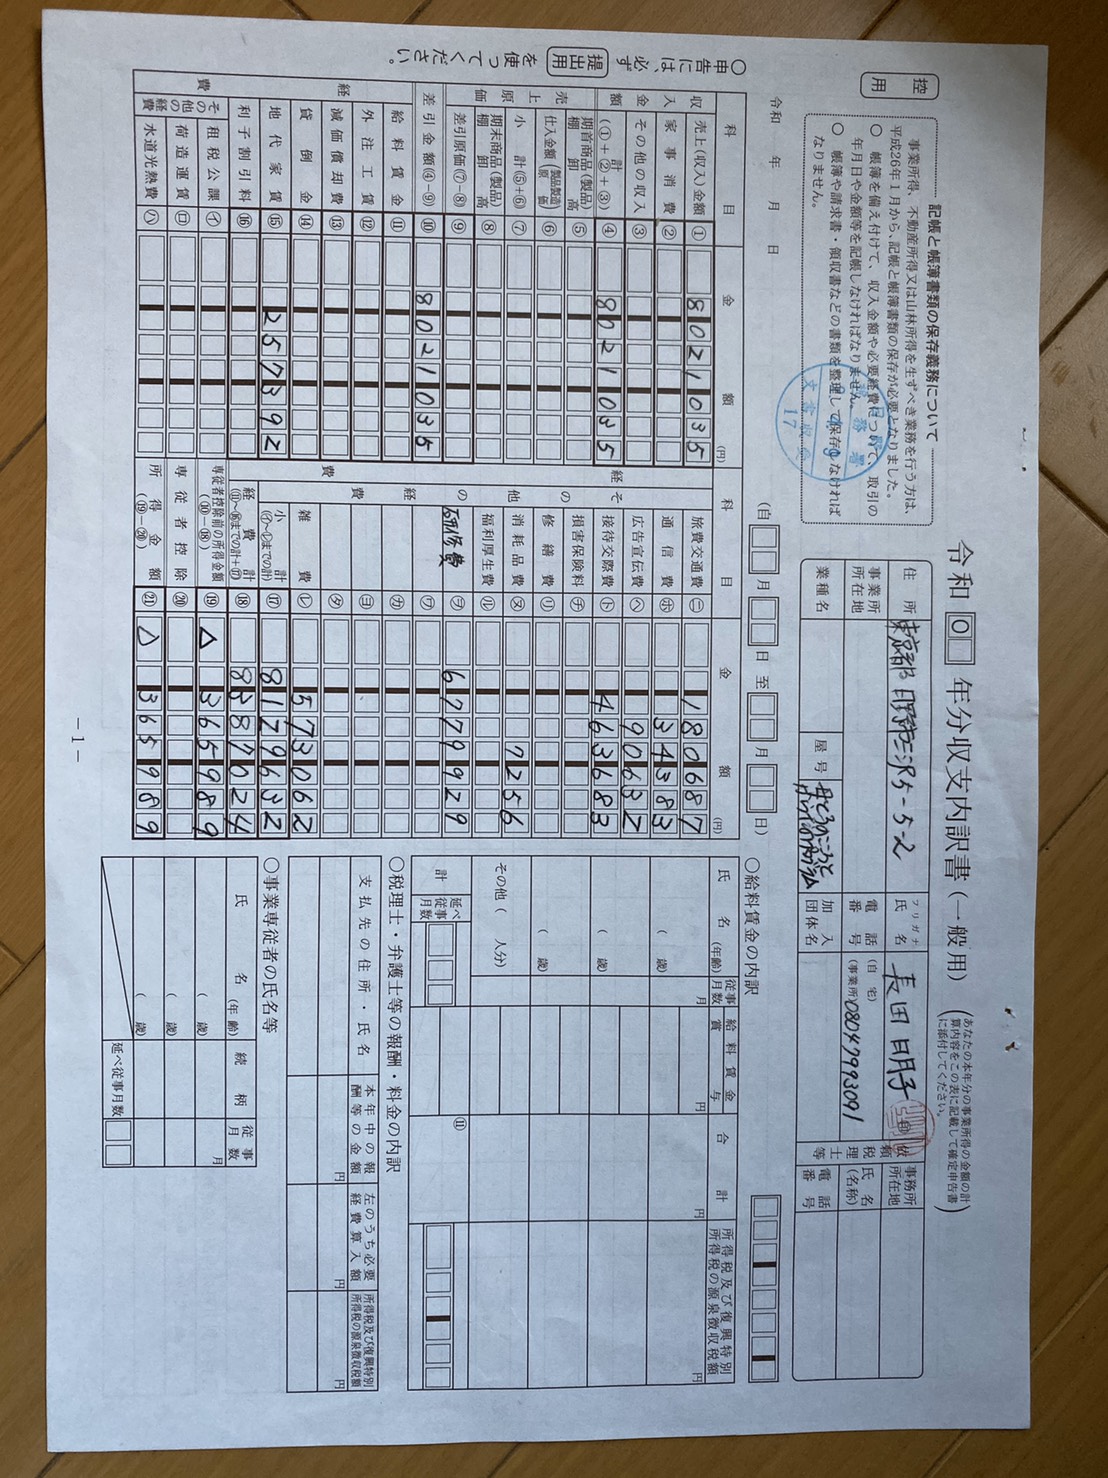 控用
令和 0 年分収支内訳書(一般用)
(あなたの本年分の事業所得の金額の計算内容をこの表に記載して確定申告書に添付してください。)
記帳と帳簿書類の保存義務について
事業所得、不動産所得又は山林所得を生ずべき業務を行う方は、平成26年1月から、記帳と帳簿書類の保存が必要となりました。
○ 帳簿を備え付けて、収入金額や必要経費について、取引の年月日や金額等を記帳しなければなりません。
○ 帳簿や請求書・領収書などの書類を整理して保存しなければなりません。
住所 東京都日野市三沢5-5-2
フリガナ
氏名 長田明子 印
事業所所在地
電話番号 (自宅)
(事業所) 08047993091
業種名
屋号
加入団体名
依頼税理士等
事務所所在地
氏名(名称)
電話番号
令和 年 月 日
(自 月 日 至 月 日)
○申告には、必ず 提出用 を使ってください。
科目 金額 (円)
収入金額
売上(収入)金額 ① 8021035
家事消費 ②
その他の収入 ③
計(①+②+③) ④ 8021035
売上原価
期首商品(製品)棚卸高 ⑤
仕入金額(製品製造原価) ⑥
小計(⑤+⑥) ⑦
期末商品(製品)棚卸高 ⑧
差引原価(⑦-⑧) ⑨
差引金額(④-⑨) ⑩ 8021035
経費
給料賃金 ⑪
外注工賃 ⑫
減価償却費 ⑬
貸倒金 ⑭
地代家賃 ⑮ 257392
利子割引料 ⑯
その他の経費
租税公課 ㋑
荷造運賃 ㋺
水道光熱費 ㋩
科目 金額 (円)
旅費交通費 ㋥ 180687
通信費 ㋭ 34383
広告宣伝費 ㋬ 90632
接待交際費 ㋣ 463683
損害保険料 ㋠
修繕費 ㋷
消耗品費 ㋦ 7256
福利厚生費 ㋸
研修費 ㋾ 6779929
㋻
㋕
㋵
㋟
雑費 ㋹ 573062
小計(㋑~㋹までの計) ⑰ 8129632
経費計(⑪~⑯までの計+⑰) ⑱ 8387024
専従者控除前の所得金額(⑩-⑱) ⑲ △365989
専従者控除 ⑳
所得金額(⑲-⑳) ㉑ △365989
○給料賃金の内訳
氏名(年齢) 従事月数 給料賃金 賞与 合計 所得税及び復興特別所得税の源泉徴収税額
( 歳) 月 円 円 円
( 歳)
( 歳)
その他( 人分)
計 延べ従事月数 ⑪
○税理士・弁護士等の報酬・料金の内訳
支払先の住所・氏名 本年中の報酬等の金額 左のうち必要経費算入額 所得税及び復興特別所得税の源泉徴収税額
円 円 円
○事業専従者の氏名等
氏名(年齢) 続柄 従事月数
( 歳) 月
( 歳)
( 歳)
延べ従事月数
- 1 -